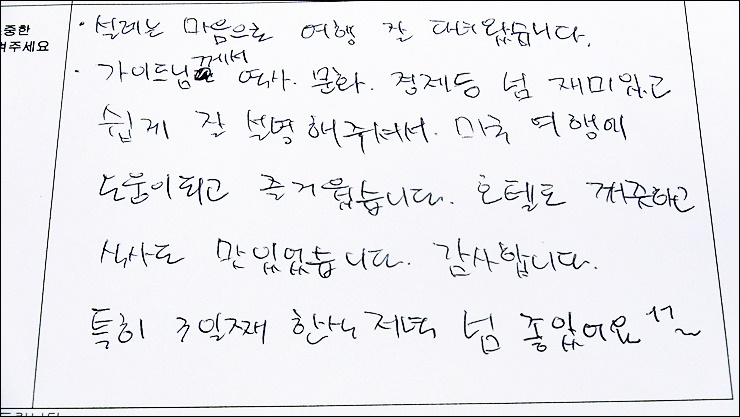 중한
겨주세요
· 설레는 마음으로 여행 잘 다녀왔습니다.
· 가이드님께서 역사. 문화. 경제등 넘 재미있고
쉽게 잘 설명해주셔서. 미국 여행에
도움이되고 즐거웠습니다. 호텔도 깨끗하고
식사도 맛있었습니다. 감사합니다.
특히 3일째 한식 저녁 넘 좋았어요